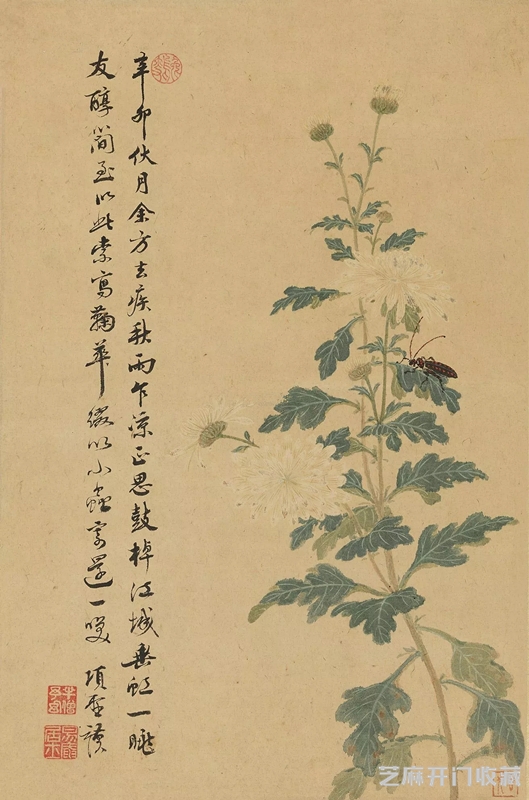 辛卯伏月余方去疾秋雨乍涼正思鼓棹江城垂虹一眺
友醇簡至以此索寫蘜華綴以小蟲寄還一噱 項聖謨
芝麻开门收藏